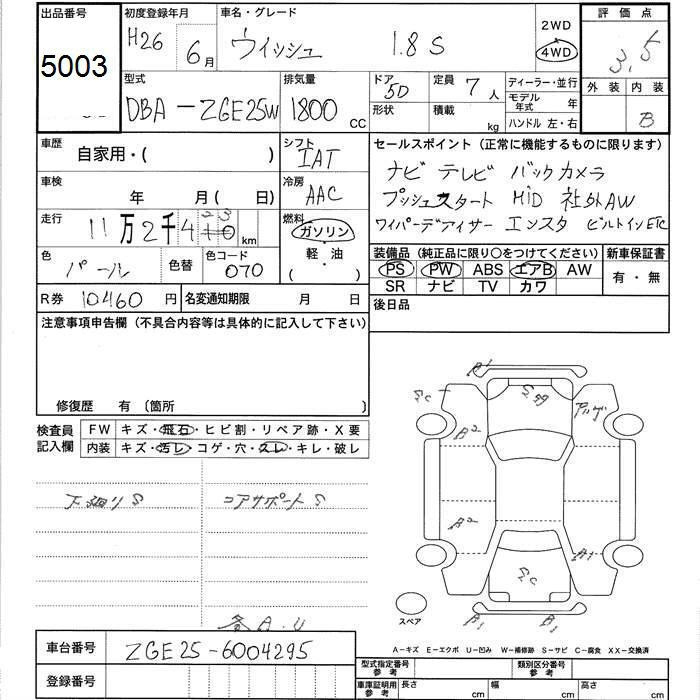 出品番号 初度登録年月 車名・グレード 2WD 評価点
5003 H26 6月 ウイッシュ 1.8 S 4WD 3.5
外装 内装
B
型式 排気量 ドア 定員 ディーラー・並行
DBA-ZGE25W 1800 CC 5D 7人 モデル年式 年
形状 積載 kg ハンドル 左・右
車歴 自家用・( ) シフト IAT
セールスポイント(正常に機能するものに限ります)
ナビ テレビ バックカメラ
プッシュスタート MID 社外AW
ワイパーデアイサー エンスタ ビルトインETC
車検 年 月(日) 冷房 AAC
走行 11万2千4 km 燃料 ガソリン・軽油・( )
色 パール 色替 色コード 070
装備品(純正品に限り〇をつけてください) 新車保証書
PS PW ABS エアB AW 有・無
SR ナビ TV カワ
R券 10460円 名変通知期限 月 日
後日品
注意事項申告欄(不具合内容等は具体的に記入して下さい)
修復歴 有〔箇所 〕
検査員記入欄 FW キズ・飛石・ヒビ割・リペア跡・X要
内装 キズ・汚レ・コゲ・穴・スレ・キレ・破レ
下廻りS コアサポートS
各A.U
B1
SC S99 アハゲ
B2
B2 A1
SC
B1 B1
スペア
A-キズ E-エクボ U-凹み W-補修跡 S-サビ C-腐食 XX-交換済
車台番号 ZGE25-6004295
登録番号
型式指定番号 参考 類別区分番号 参考
車庫証明用 参考 長さ cm 幅 cm 高さ cm